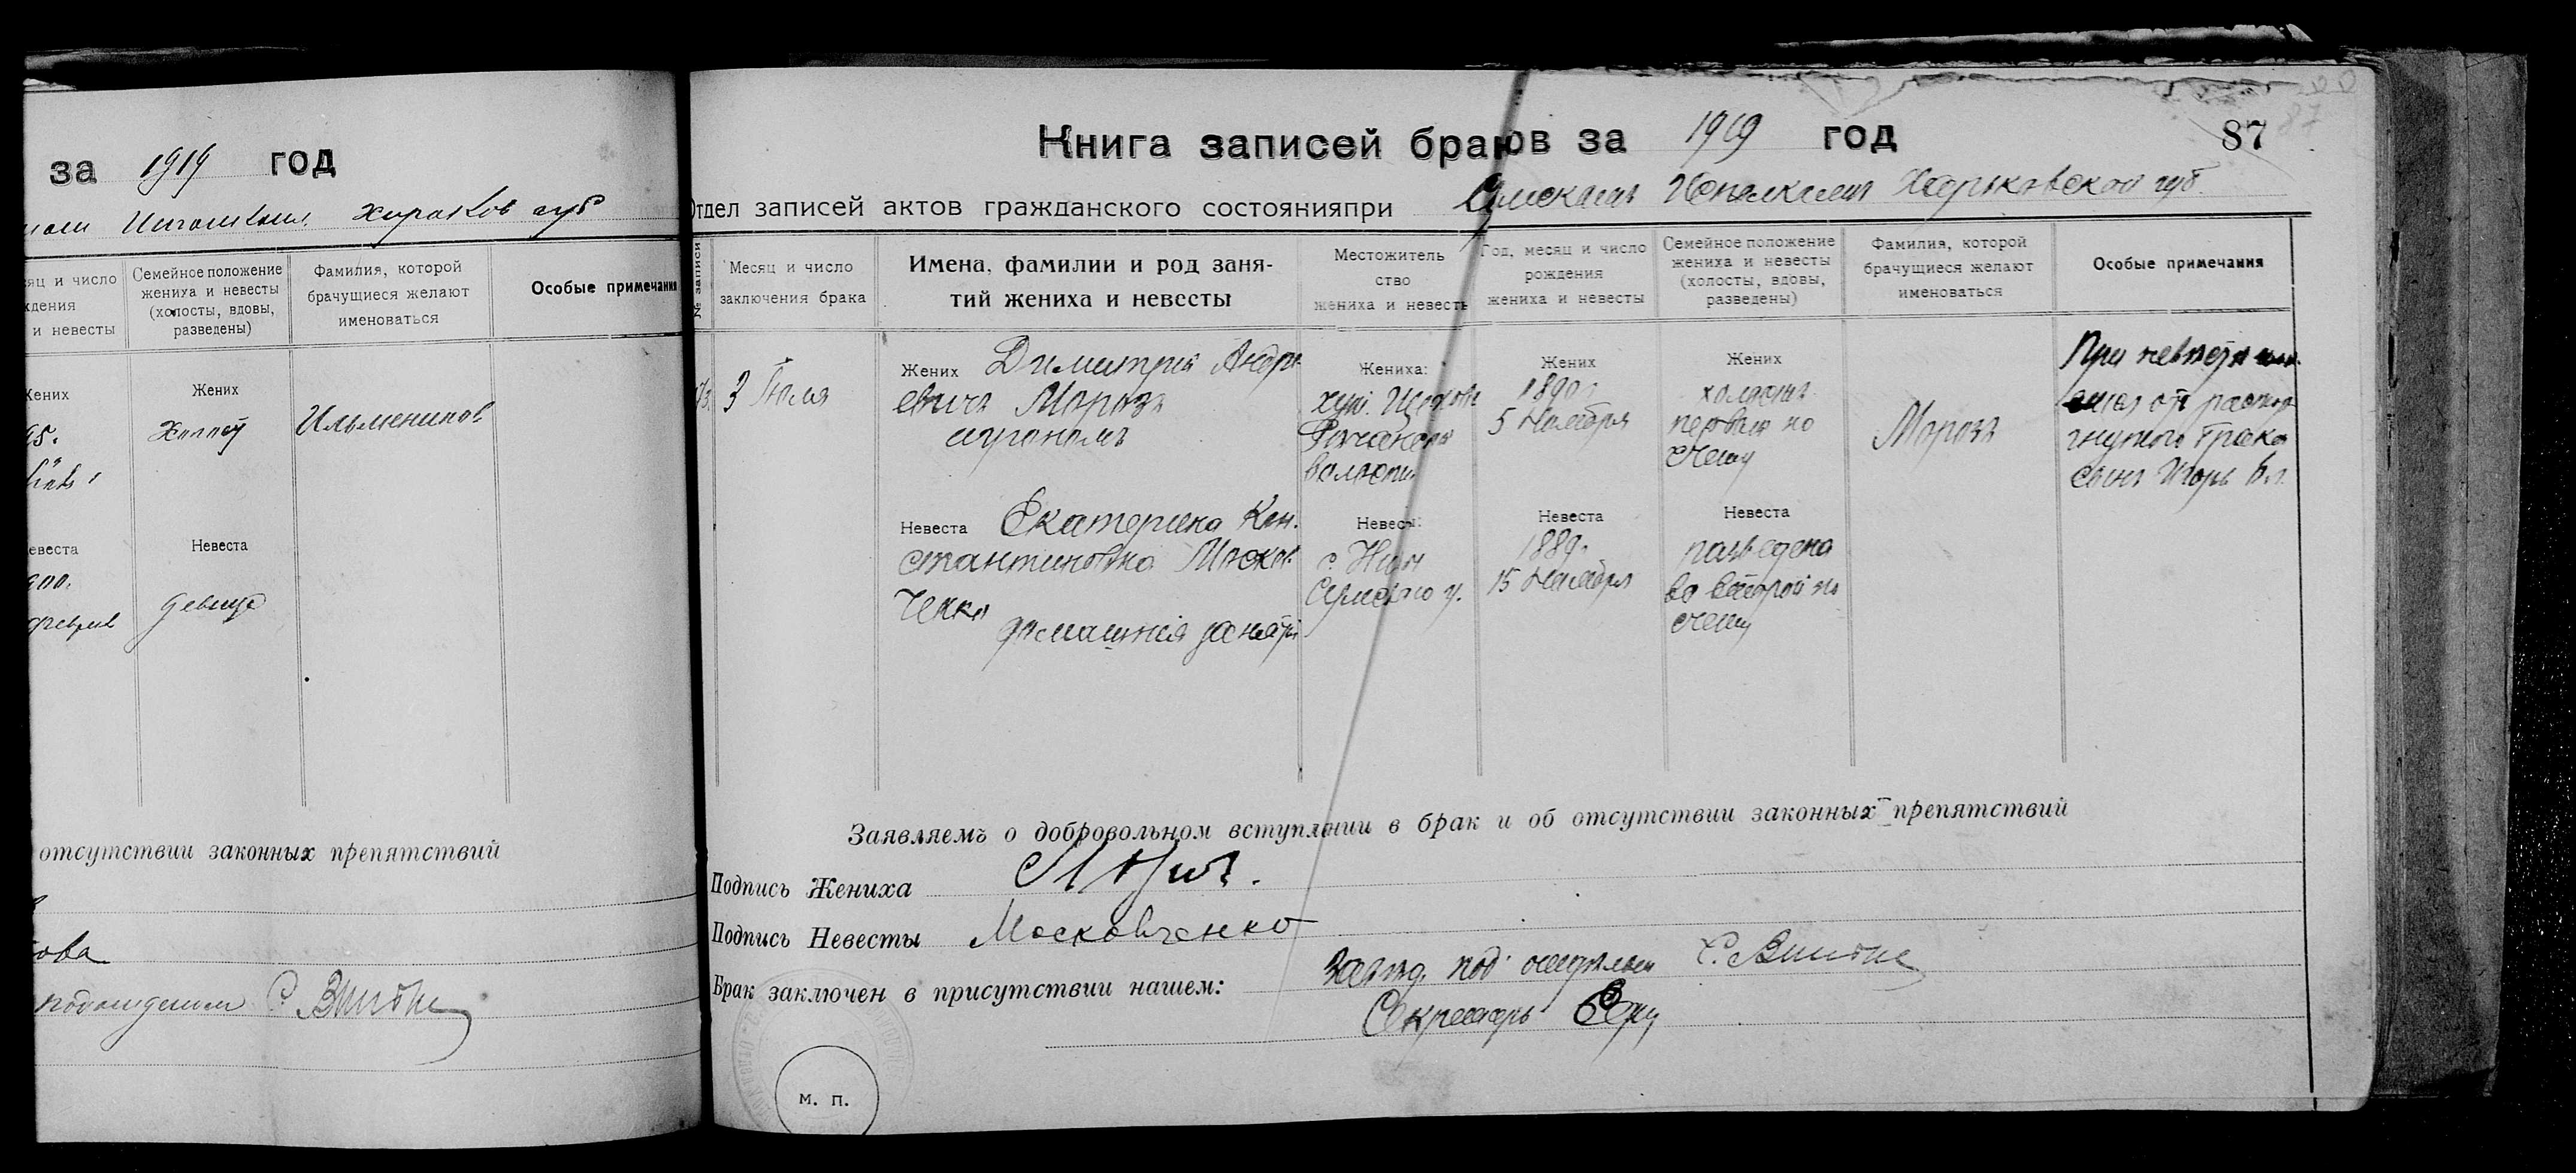 за 1919 год
Харьков губ
Семейное положение жениха и невесты (холосты, вдовы, разведены)
Фамилия, которой брачущиеся желают именоваться
Особые примечания
и невесты
Жених
Жених
95.
Холост
Ильменипов
Невеста
девица
отсутствии законных препятствий
ова
С. Винтн
Книга записей браков за 1919 год
87
87
Отдел записей актов гражданского состоянияпри Сумскам Харьковской губ.
№ записи
Месяц и число
заключения брака
Имена, фамилии и род заня-
тий жениха и невесты
Местожитель
ство
жениха и невесты
Год, месяц и число
рождения
жениха и невесты
Семейное положение
жениха и невесты
(холосты, вдовы,
разведены)
Фамилия, которой
брачущиеся желают
именоваться
Особые примечания
3 Июля
Жених Димитрий Андре
евичъ Морозъ
агрономъ
Жениха:
хут.
волости
Жених
1890 г
5 Ноября
Жених
холостъ
первым по
счету
Морозъ
При невесте
от растор
гнутого брака
сынъ Игорь
Невеста Екатерина Кон.
стантиновна Москов
ченко
домашния занятия
Невесты:
с. Низы
Сумского у.
Невеста
1889.
15 Ноября
Невеста
разведена
во второй по
счету
Заявляемъ о добровольном вступлении в брак и об отсутствии законных препятствий
Подпись Жениха
Подпись Невесты Московченко
Брак заключен в присутствии нашем: Завед. подотделом С. Винтн
Секретарь
м. п.